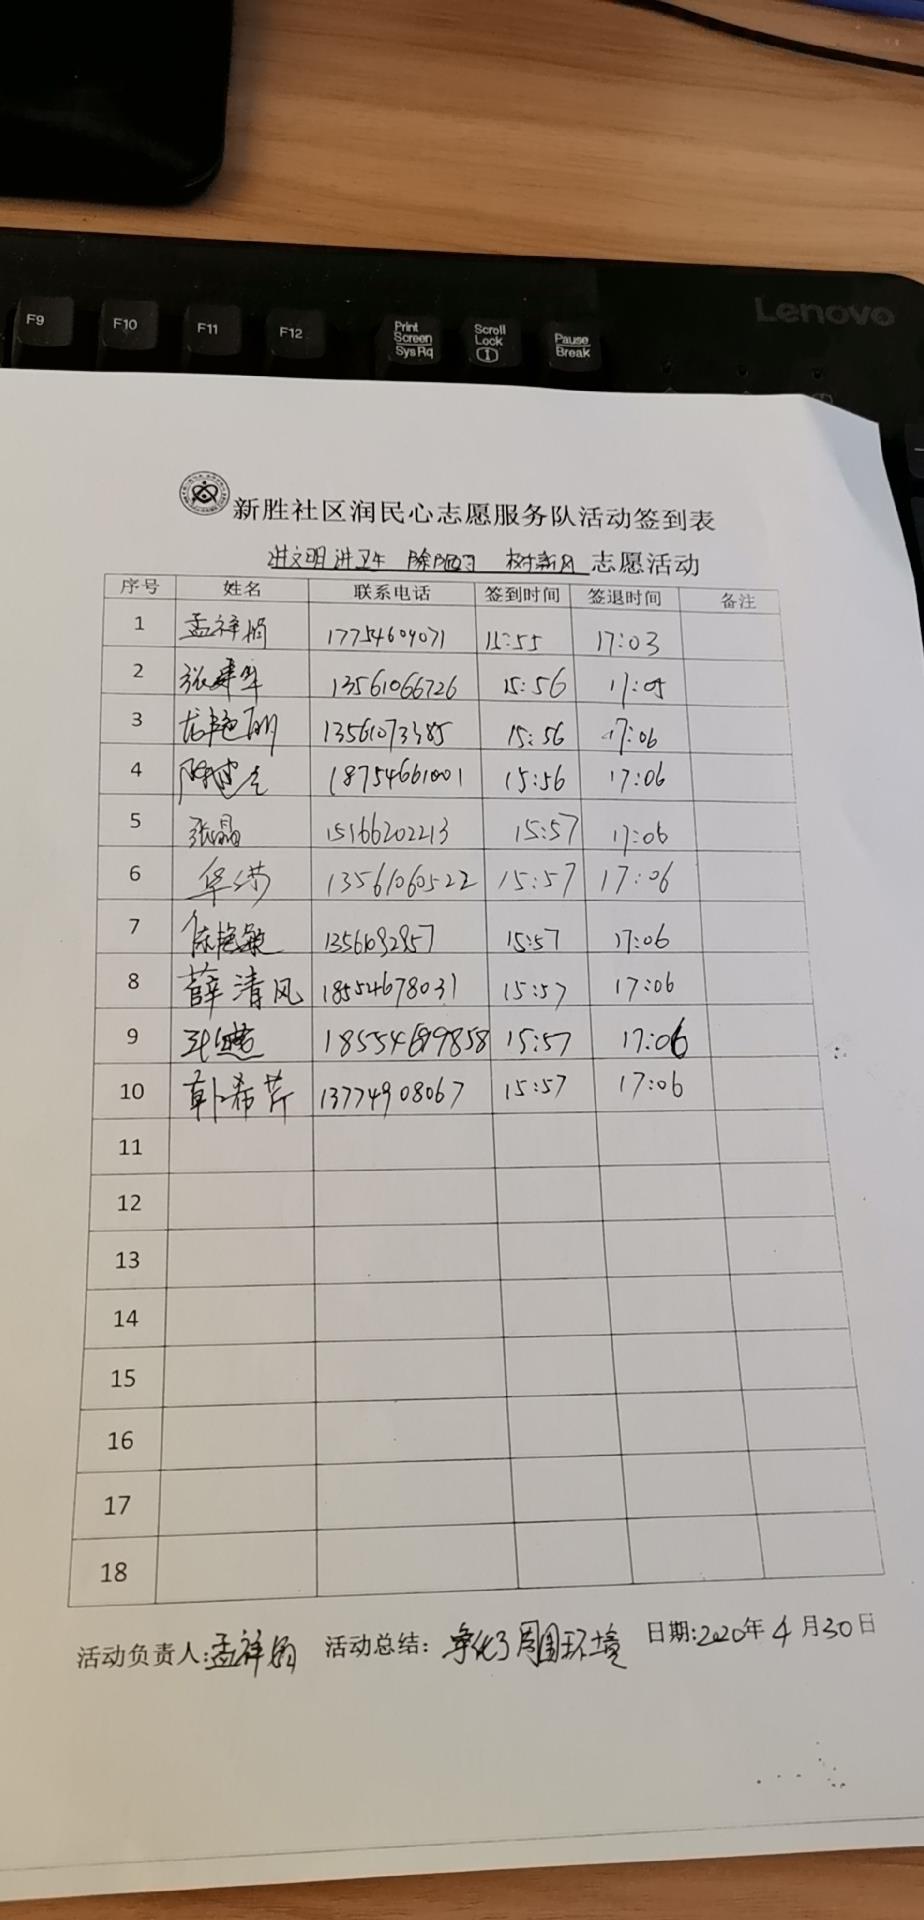 Lenovo
F9 F10 F11 F12 Print Screen SysRq Scroll Lock Pause Break
新胜社区润民心志愿服务队活动签到表
讲文明讲卫生 除陋习 树新风 志愿活动
序号 姓名 联系电话 签到时间 签退时间 备注
1 孟祥娟 17754609071 15:55 17:03
2 张建华 13561066726 15:56 17:05
3 13561073485 15:56 17:06
4 18754661001 15:56 17:06
5 张晶 15166202213 15:57 17:06
6 13561060522 15:57 17:06
7 陈艳敏 1356192957 15:57 17:06
8 薛清风 18554678031 15:57 17:06
9 15:57 17:06
10 韩希芹 13774908067 15:57 17:06
11
12
13
14
15
16
17
18
活动负责人:孟祥娟 活动总结: 净化了周围环境 日期:2020年4月30日